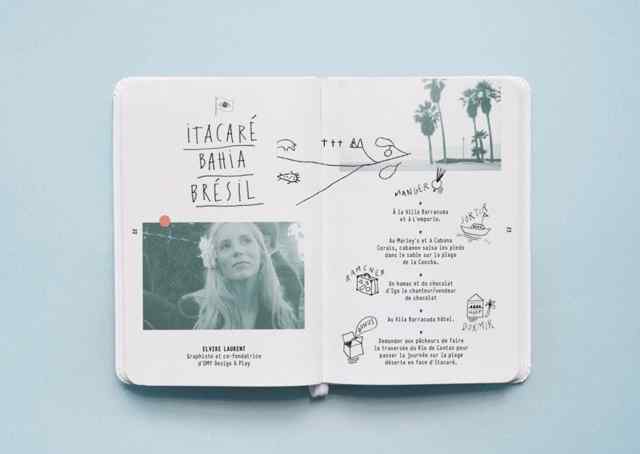 iTACARÉ
BAHIA
BRÉSIL
ELVIRE LAURENT
Graphiste et co-fondatrice
d'OMY Design & Play
MANGER
À la Villa Barracuda
et à L'emporio.
SORTIR
Au Marley's et à Cabana
Corais, cabanon salsa les pieds
dans le sable sur la plage
de la Concha.
RAMENER
Un hamac et du chocolat
d'Igo le chanteur/vendeur
de chocolat
Au Villa Barracuda hôtel.
DORMIR
BONUS
Demander aux pêcheurs de faire
la traversée du Rio de Contas pour
passer la journée sur la plage
déserte en face d'Itacaré.